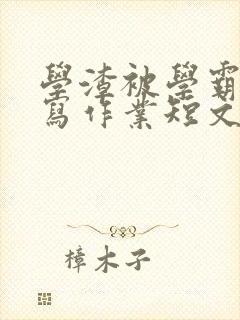 學渣被學霸
寫作業短文
樟木子